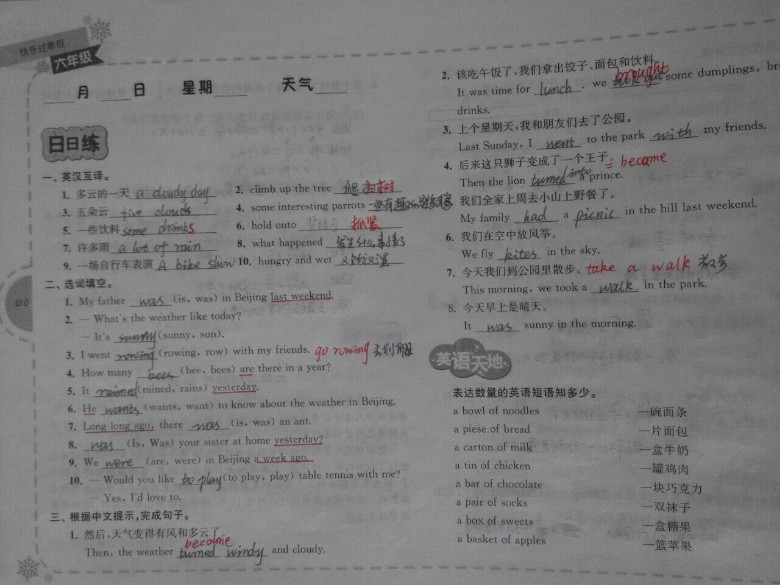 快乐过寒假
六年级
____月____日 星期____ 天气
日日练
一、英汉互译。
1. 多云的一天 a cloudy day 2. climb up the tree 爬上树
3. 五朵云 five clouds 4. some interesting parrots 一些有趣的鹦鹉
5. 一些饮料 some drinks 6. hold onto 抓紧
7. 许多雨 a lot of rain 8. what happened 发生什么事情了
9. 一场自行车表演 A bike show 10. hungry and wet 又饿又湿
二、选词填空。
1. My father was (is, was) in Beijing last weekend.
2. — What's the weather like today?
— It's sunny (sunny, sun).
3. I went rowing (rowing, row) with my friends. go rowing 去划船
4. How many bees (bee, bees) are there in a year?
5. It rained (rained, rains) yesterday.
6. He wants (wants, want) to know about the weather in Beijing.
7. Long long ago, there was (is, was) an ant.
8. was (Is, Was) your sister at home yesterday?
9. We were (are, were) in Beijing a week ago.
10. — Would you like to play (to play, play) table tennis with me?
— Yes, I'd love to.
三、根据中文提示,完成句子。
1. 然后,天气变得有风和多云了。
became
Then, the weather turned windy and cloudy.
2. 该吃午饭了,我们拿出饺子、面包和饮料。
brought
It was time for lunch. we took out some dumplings, br
drinks.
3. 上个星期天,我和朋友们去了公园。
Last Sunday, I went to the park with my friends.
4. 后来这只狮子变成了一个王子。= became
Then the lion turned into prince.
5. 我们全家上周去小山上野餐了。
My family had a picnic in the hill last weekend.
6. 我们在空中放风筝。
We fly kites in the sky.
7. 今天我们到公园里散步。take a walk 散步
This morning, we took a walk in the park.
8. 今天早上是晴天。
It was sunny in the morning.
010
英语天地
表达数量的英语短语知多少。
a bowl of noodles 一碗面条
a piese of bread 一片面包
a carton of milk 一盒牛奶
a tin of chicken 一罐鸡肉
a bar of chocolate 一块巧克力
a pair of socks 一双袜子
a box of sweets 一盒糖果
a basket of apples 一篮苹果